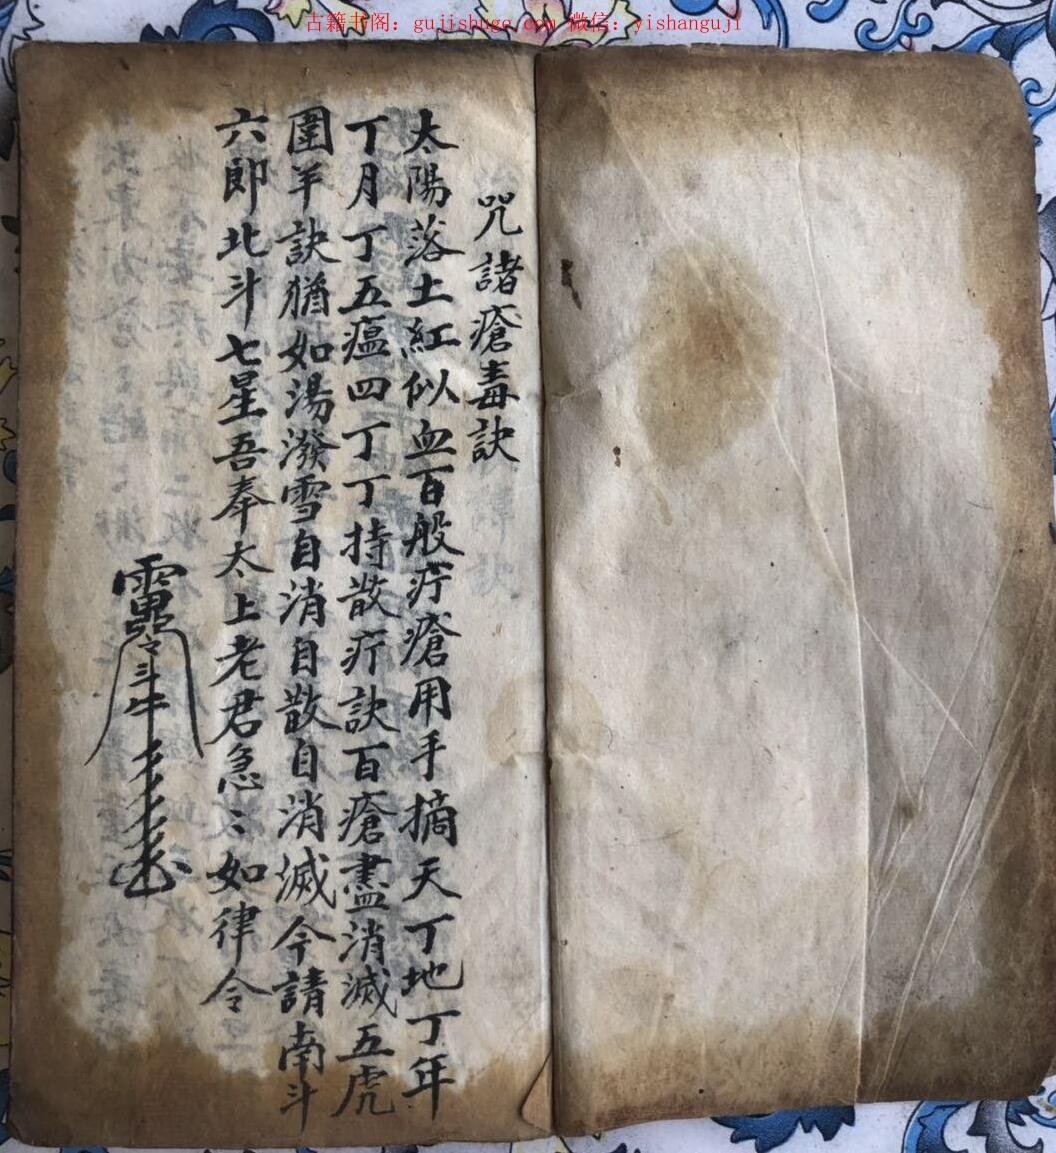 古籍书阁：gujishuge.com 微信：yishanguji
咒諸瘡毒訣
太陽落土紅似血百般疔瘡用手摘天丁地丁年
丁月丁五瘟四丁丁持散疔訣百瘡盡消滅五虎
圍羊訣猶如湯潑雪自消自散自消滅今請南斗
六郎北斗七星吾奉太上老君急〻如律令